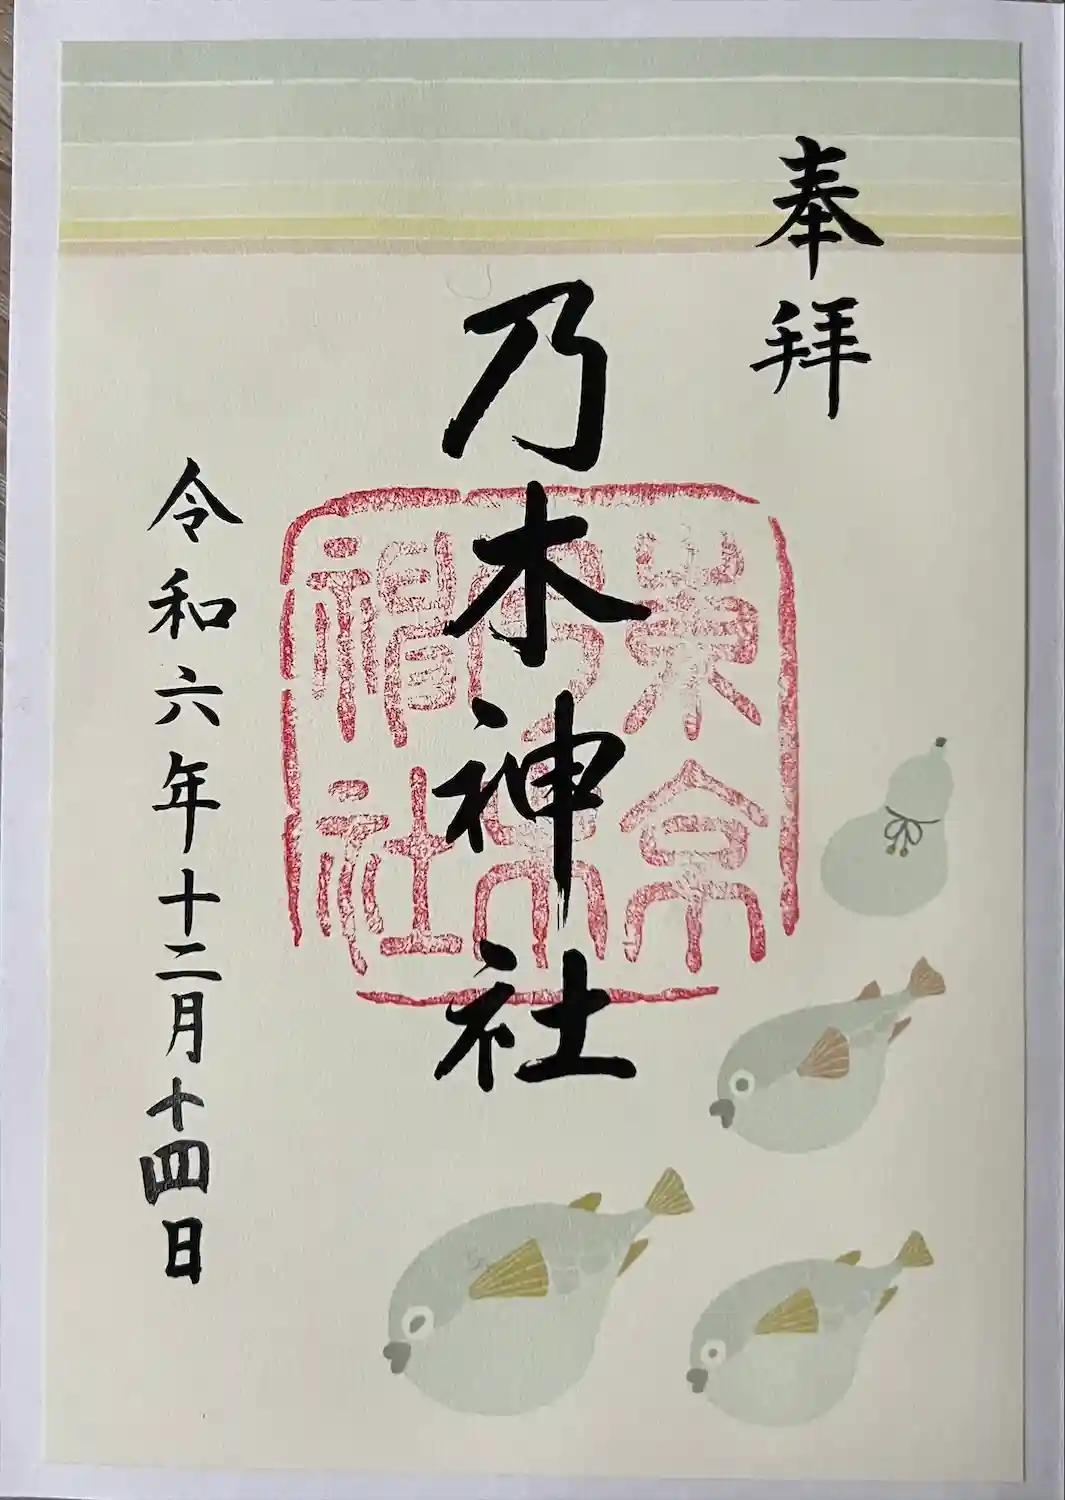 奉拝
乃木神社
乃木
神社
令和六年十二月十四日